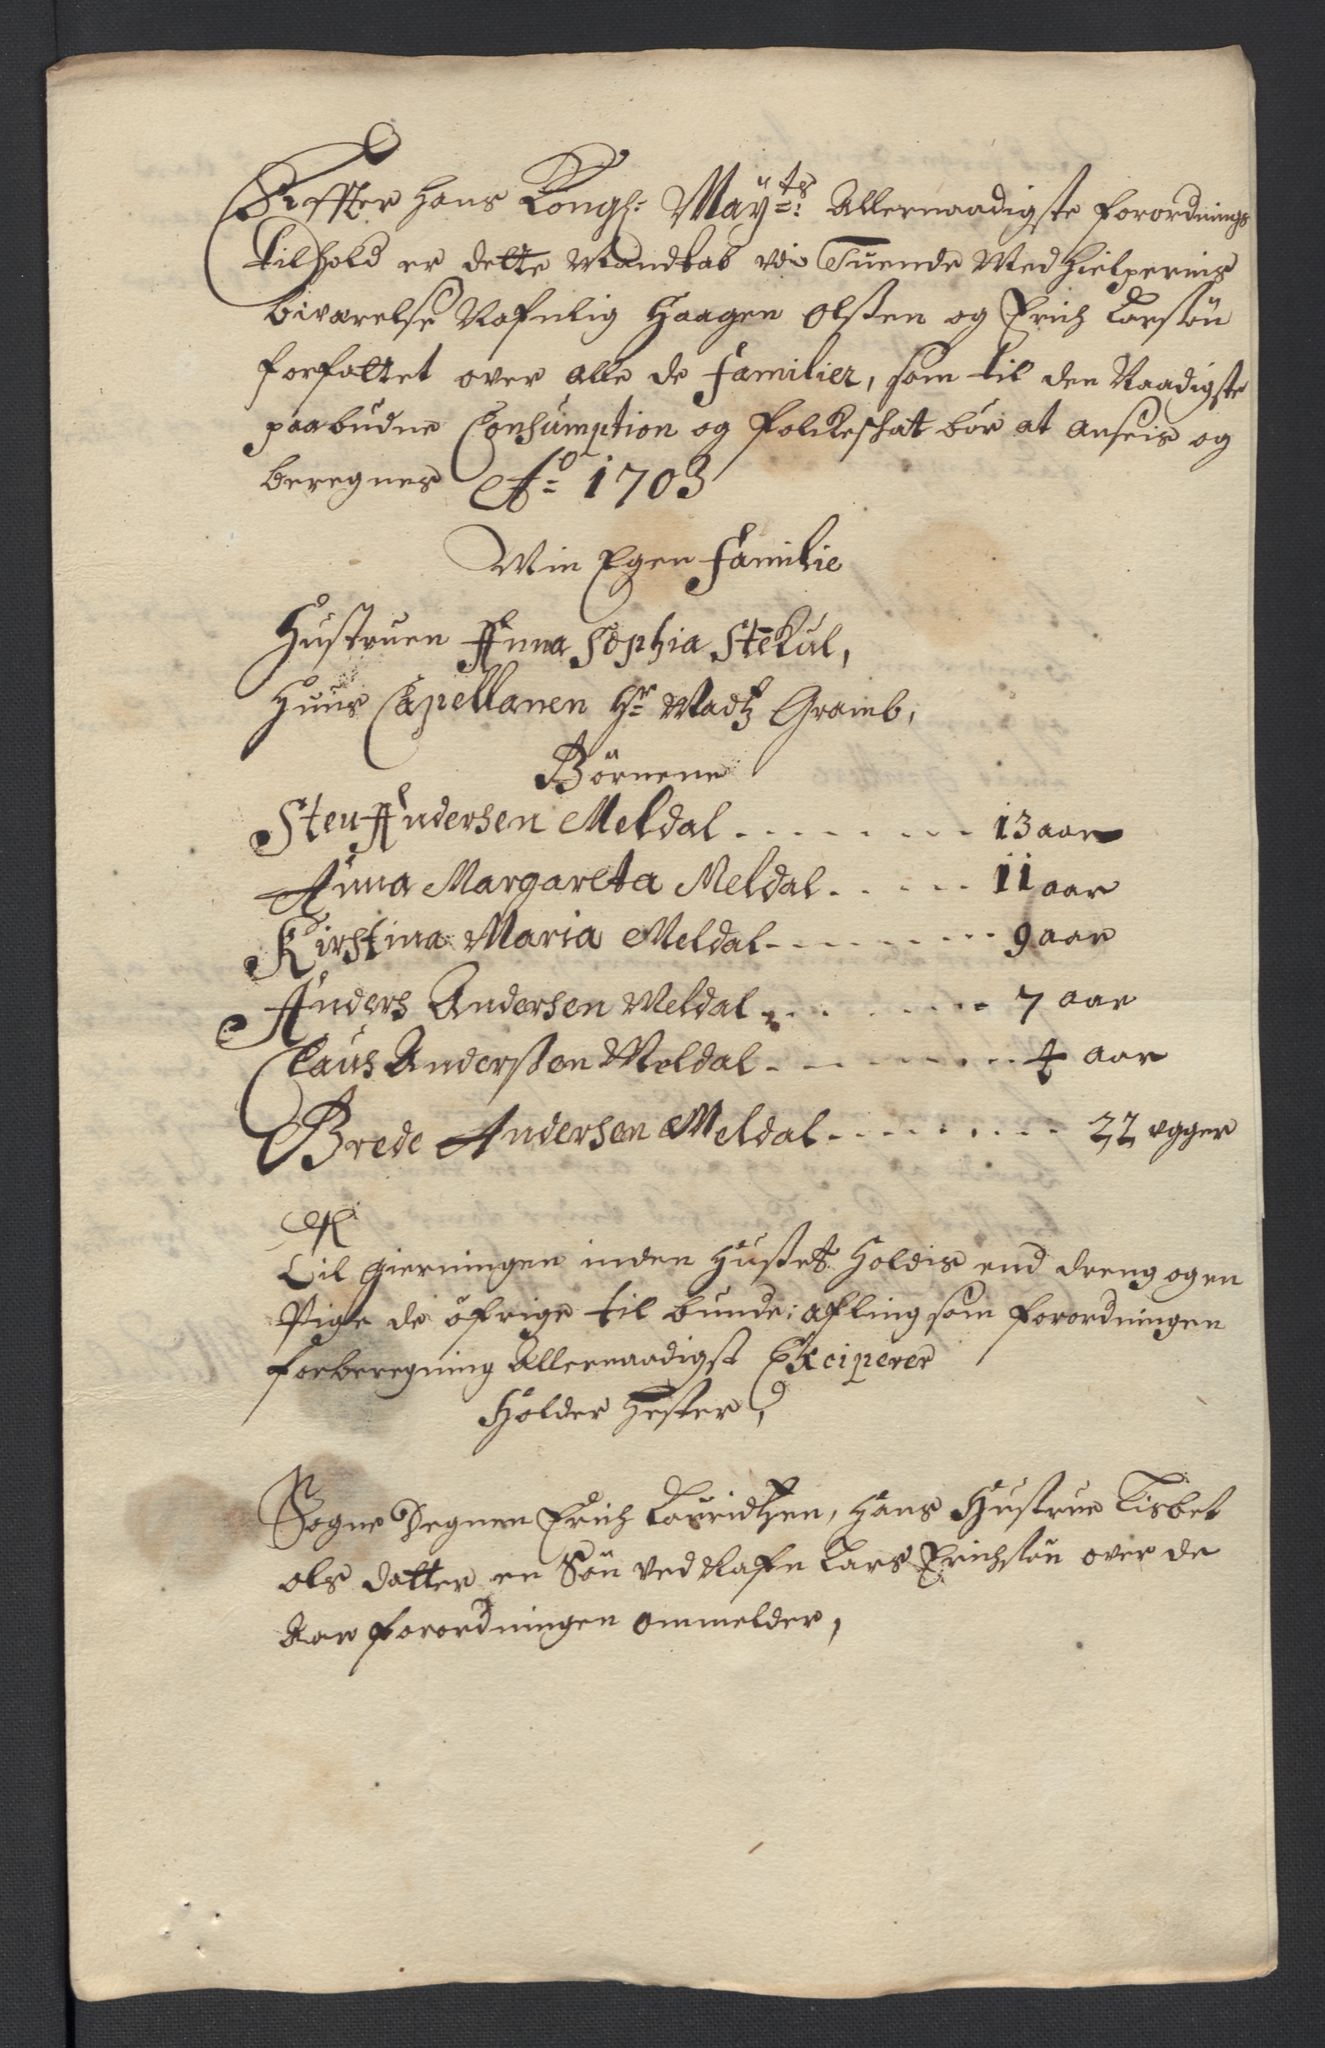 Effter hans Kongl: Mayts: Allernaadigste forordnings
tilhold er dette Mandtal udi Tuende Medhielperins
biværelse Nafnlig Haagen Olsßen og Erich Larssøn
forfattet over alle de familier, som til den Naadigste
paabudne Consumption og folckeschat bør at anseis og
beregnes Ao 1703
Min Egen familie
Hustruen Anna Sophia Stekul,
Huus Capellanen Hr Madtz Gramb,
Börnene
Sten Andersen Meldal - - - - - - - 13 aar
Anna Margareta Meldal - - - - - 11 aar
Kirstina Maria Meldal - - - - - - - 9 aar
Anders Andersen Meldal - - - - - - 7 aar
Claus Anderssen Meldal - - - - - - - 4 aar
Brede Andersen Meldal - - - - - - - 22 ugger
Til gierningen inden Husset Holdis end dreng og en
Pige de öfrige til bunde: afling som forordningen
forberegning Allernaadigst Exciperer
Holder Hester,
Sogne Degnen Erich Lauridtzen, Hans Hustrue Lisbet
Ols datter en Søn ved Nafn Lars Erichsøn over de
Aar forordningen ommelder,